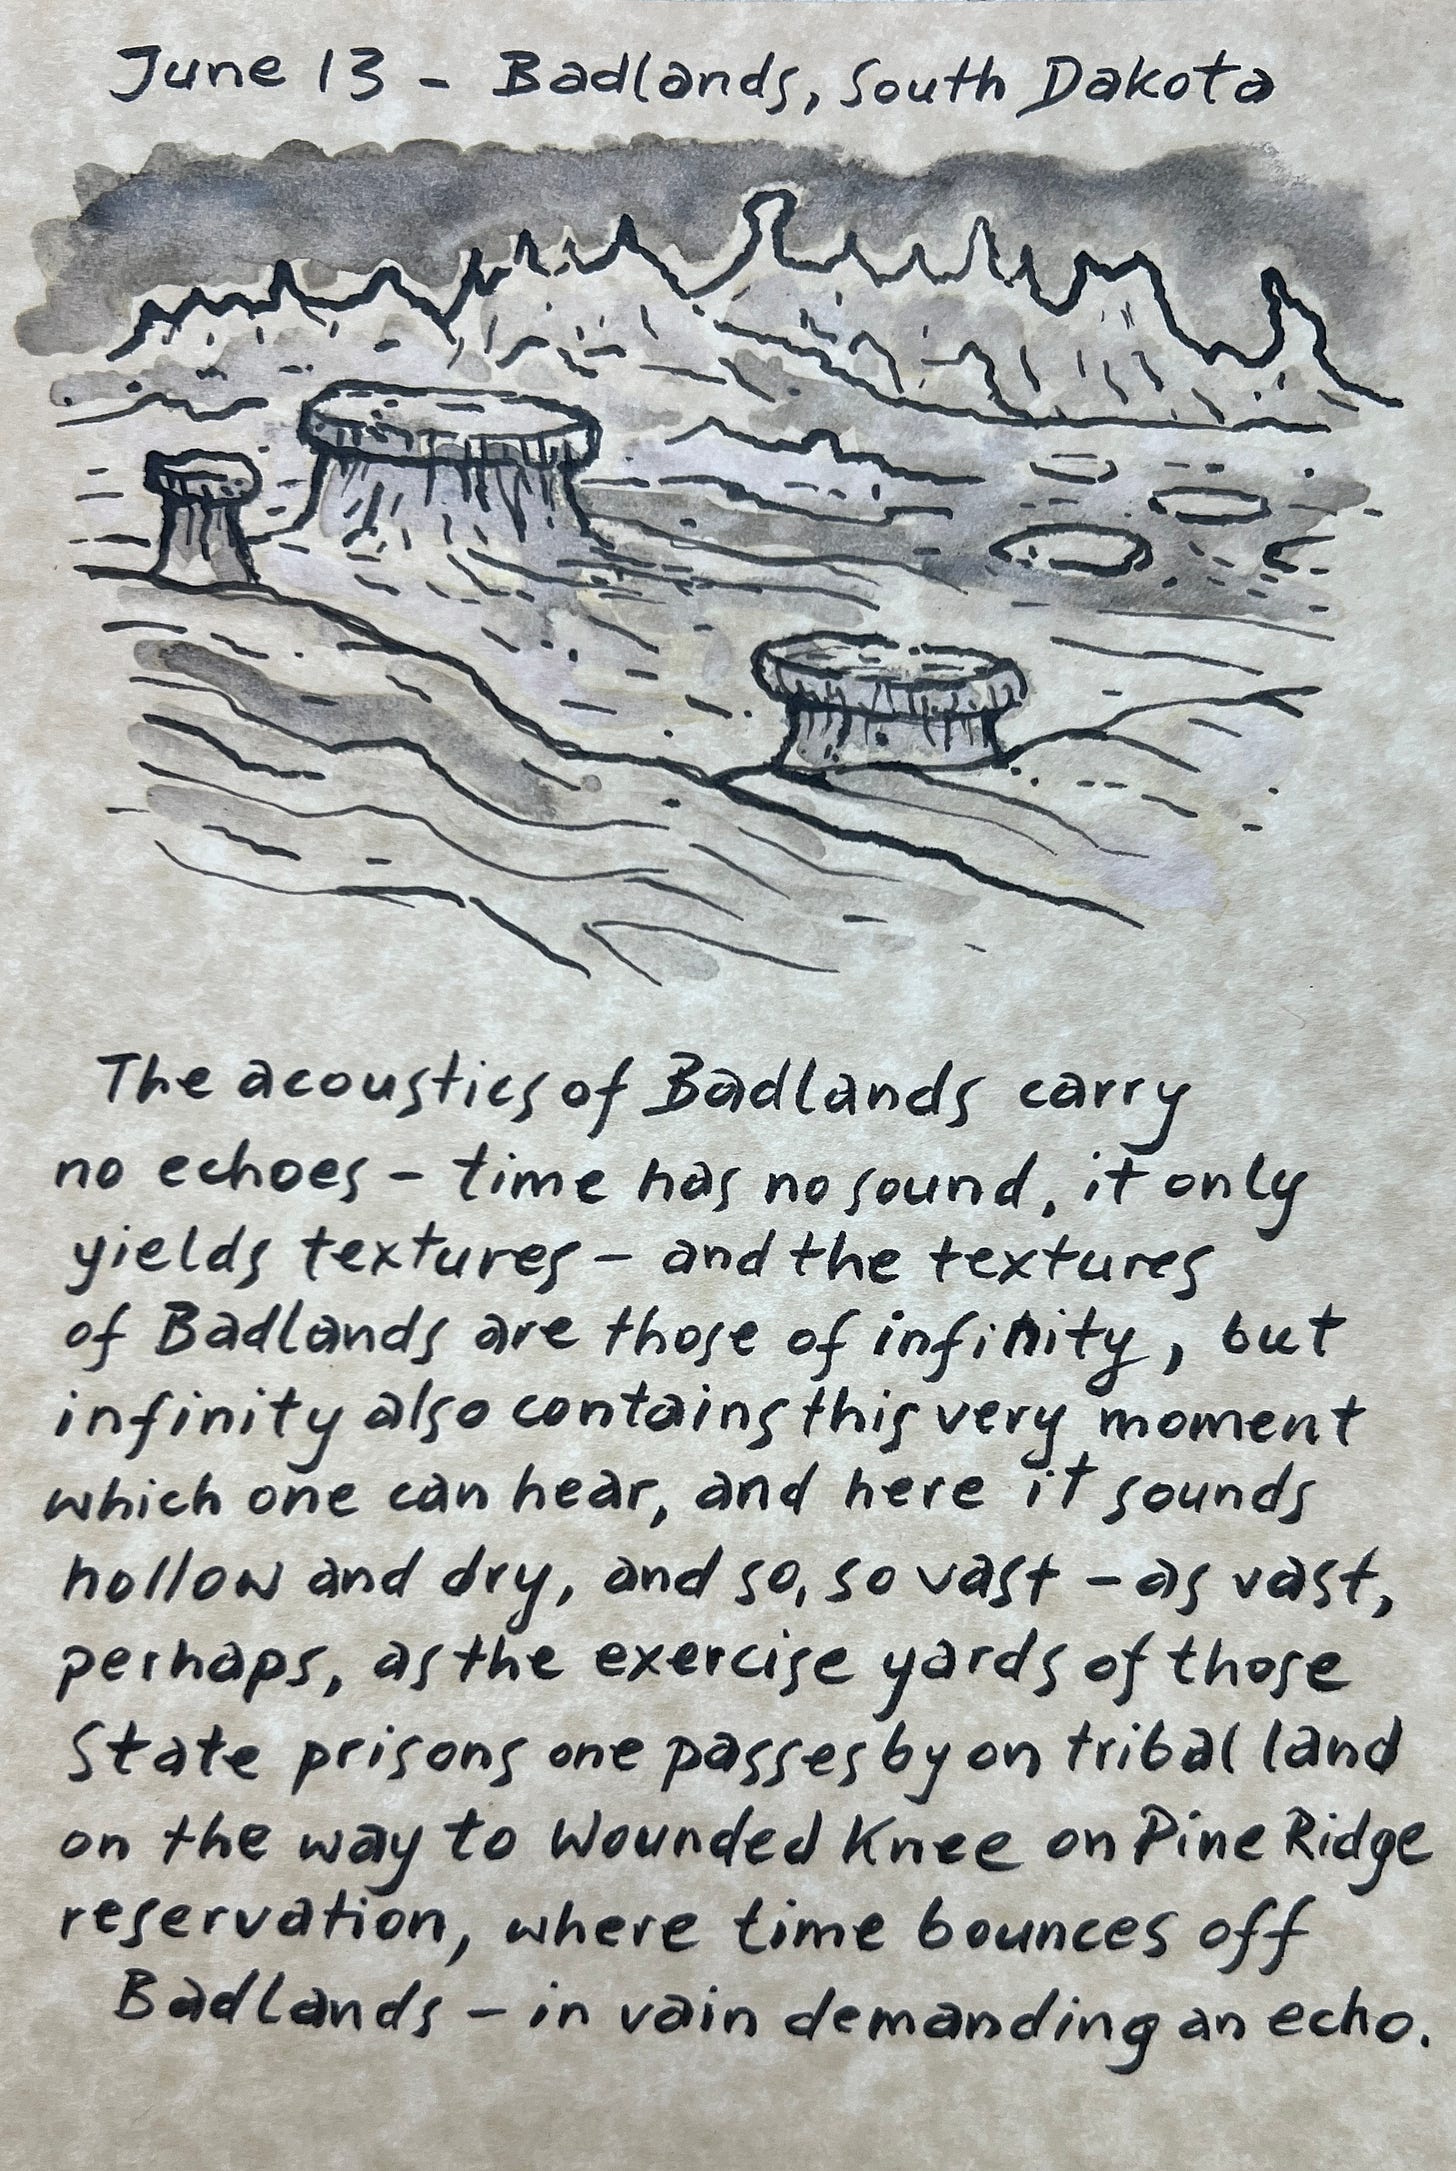 June 13 - Badlands, South Dakota
The acoustics of Badlands carry
no echoes - time has no sound, it only
yields textures - and the textures
of Badlands are those of infinity, but
infinity also contains this very moment
which one can hear, and here it sounds
hollow and dry, and so, so vast - as vast,
perhaps, as the exercise yards of those
State prisons one passes by on tribal land
on the way to Wounded Knee on Pine Ridge
reservation, where time bounces off
Badlands - in vain demanding an echo.